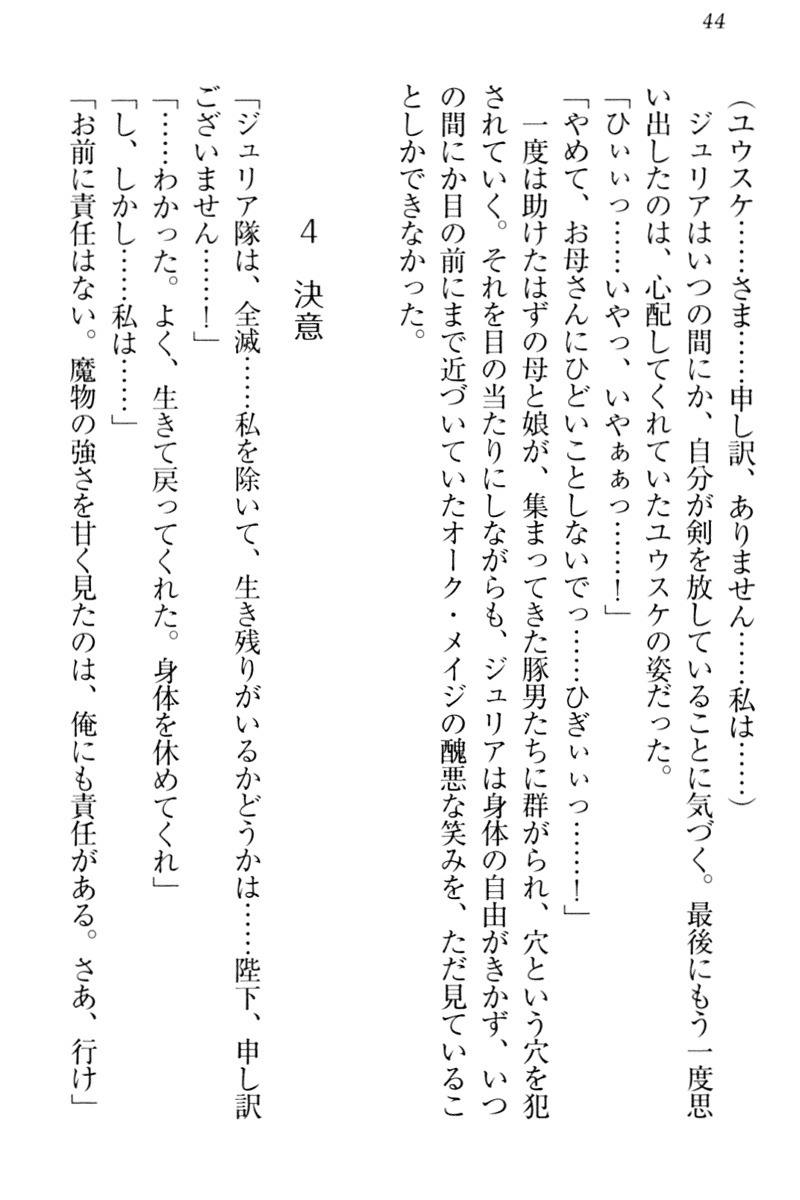 44
(ユウスケ……さま……申し訳、ありません……私は……)
ジュリアはいつの間にか、自分が剣を放していることに気づく。最後にもう一度思
い出したのは、心配してくれていたユウスケの姿だった。
「ひぃぃっ……いやっ、いやぁぁっ……！」
「やめて、お母さんにひどいことしないでっ……ひぎぃぃっ……！」
一度は助けたはずの母と娘が、集まってきた豚男たちに群がられ、穴という穴を犯
されていく。それを目の当たりにしながらも、ジュリアは身体の自由がきかず、いつ
の間にか目の前にまで近づいていたオーク・メイジの醜悪な笑みを、ただ見ているこ
としかできなかった。
4 決意
「ジュリア隊は、全滅……私を除いて、生き残りがいるかどうかは……陛下、申し訳
ございません……！」
「……わかった。よく、生きて戻ってくれた。身体を休めてくれ」
「し、しかし……私は……」
「お前に責任はない。魔物の強さを甘く見たのは、俺にも責任がある。さあ、行け」